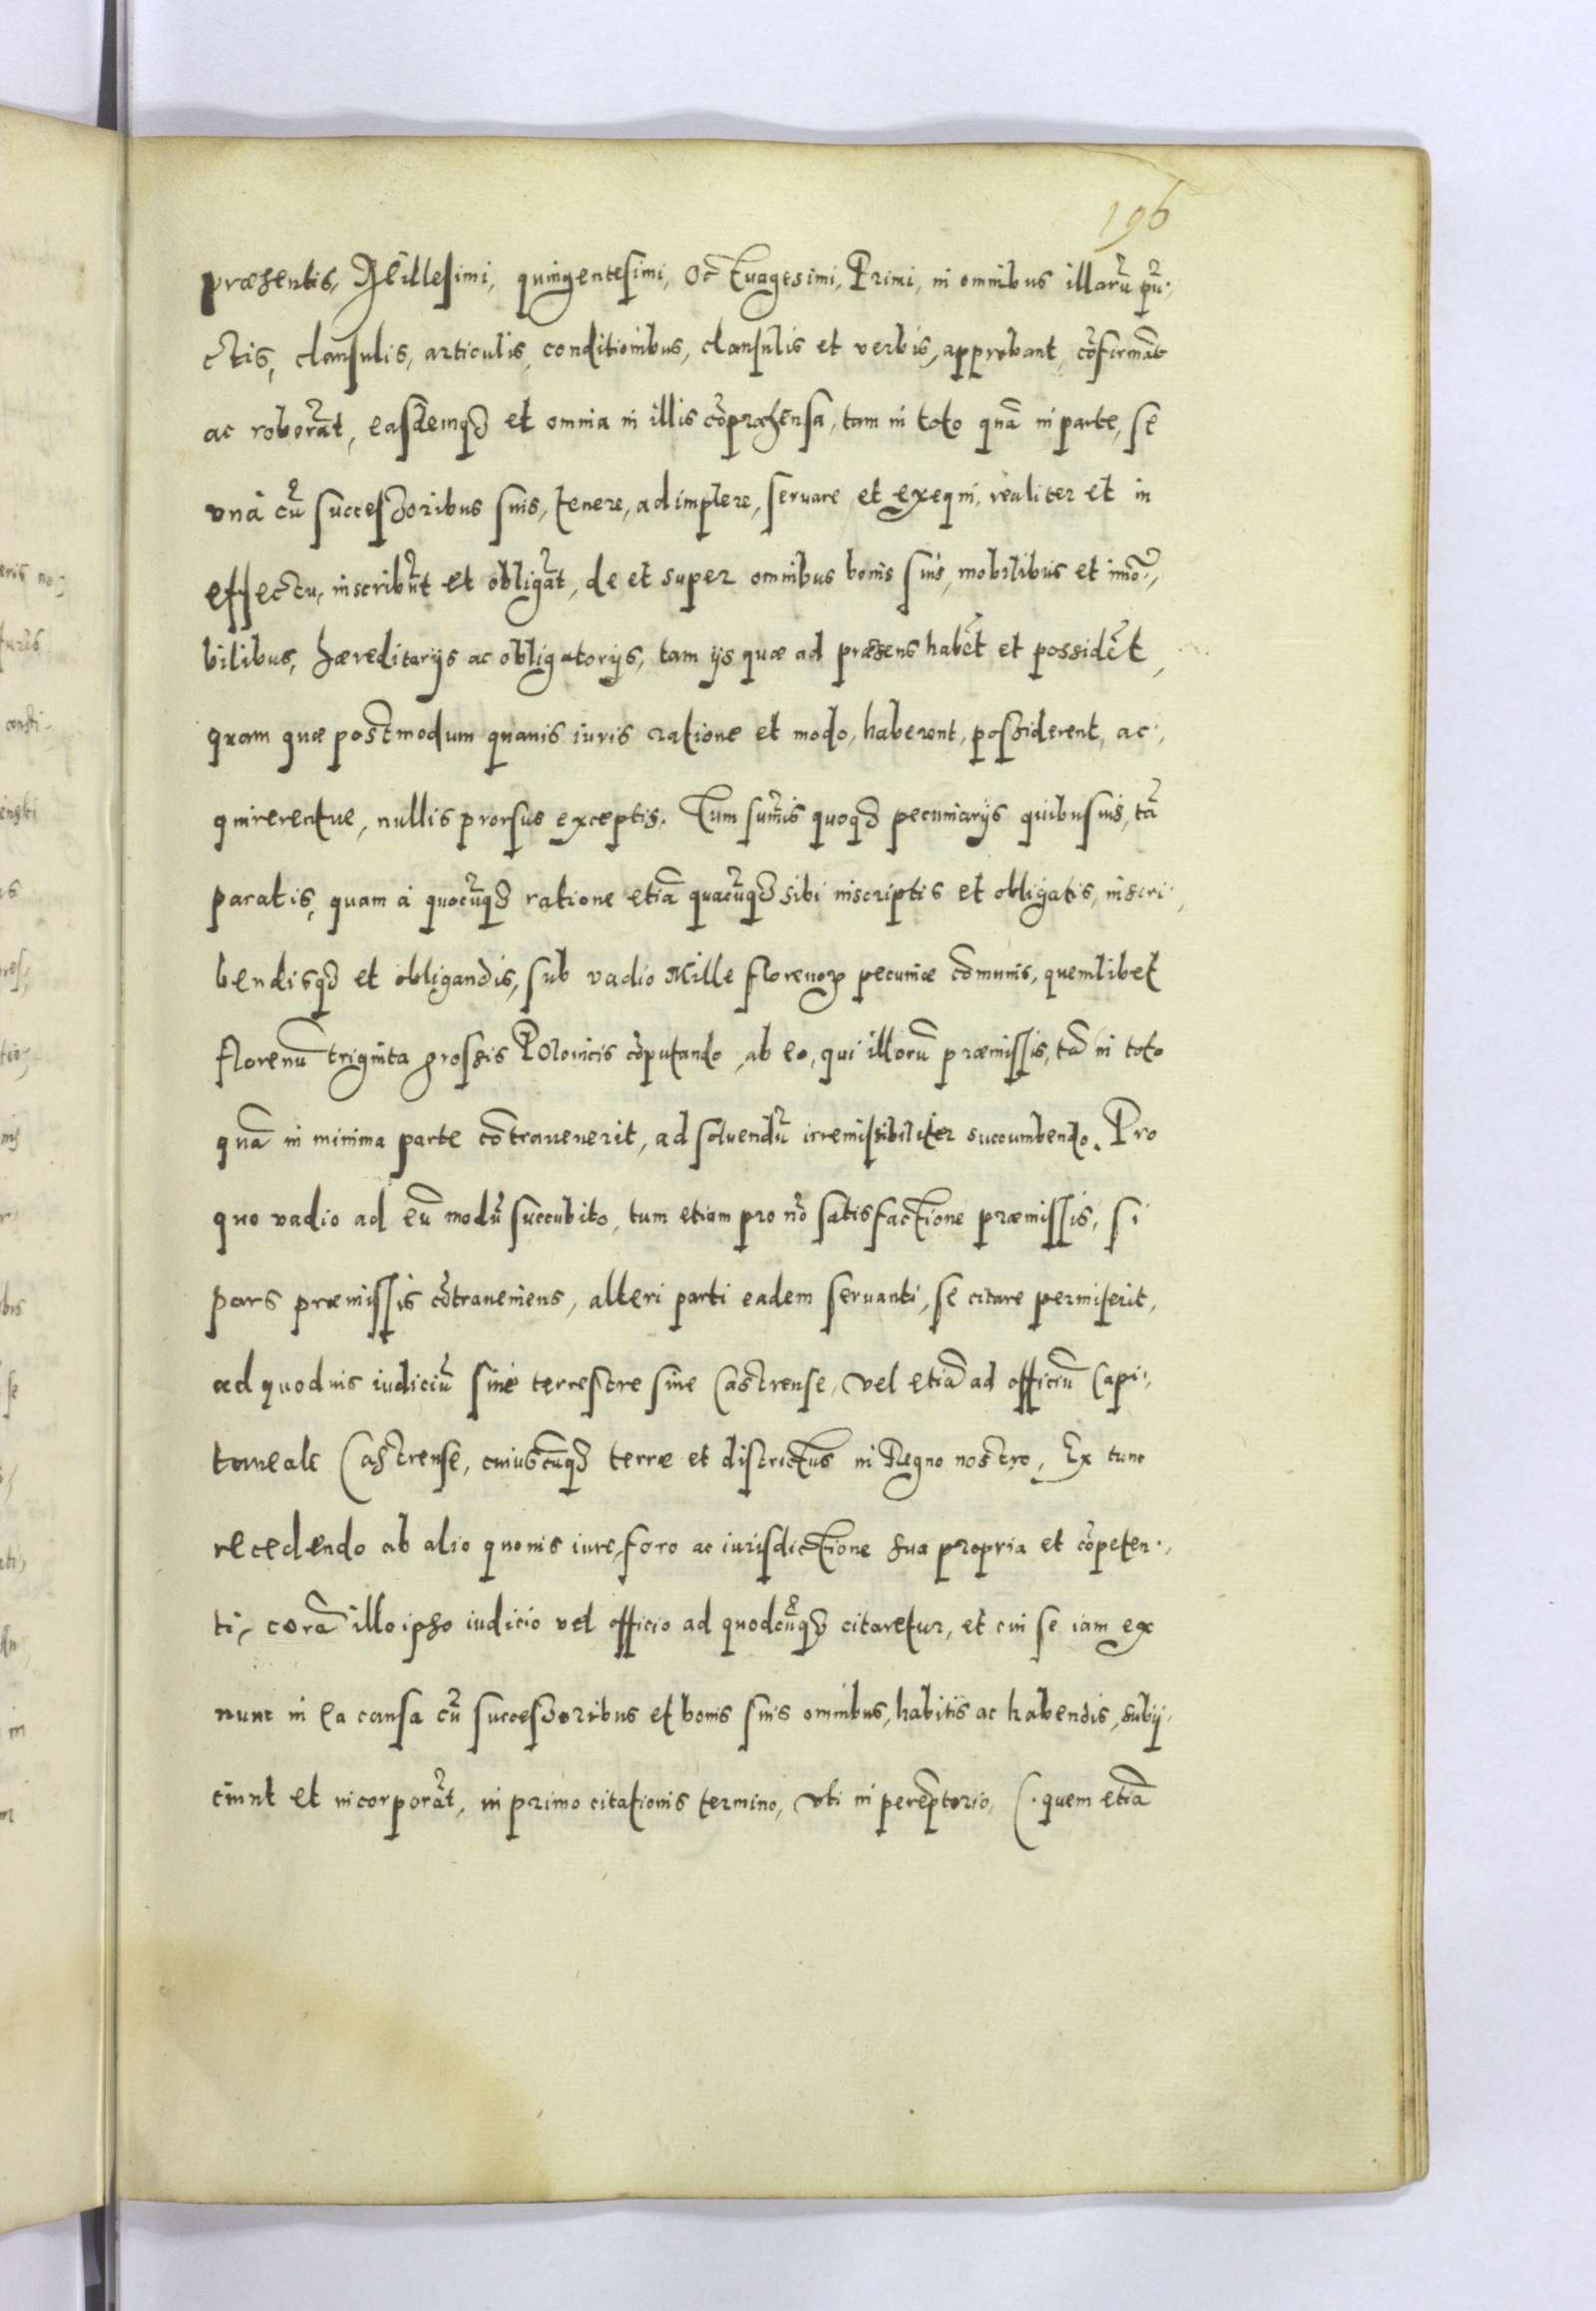 196
præsentis, Millesimi, quingentesimi, Octuagesimi, Primi, in omnibus illarũ pũ-
ctis, clausulis, articulis, conditionibus, clausulis et verbis, approbant, cõfirmãt
ac roborãt, easdemq₃ et omnia in illis cõpræhensa, tam in toto quã in parte, se
vnà cũ successoribus suis, tenere, adimplere, seruare et exequi, realiter et in
effectu, inscribũt et obligãt, de et super omnibus bonis suis, mobilibus et imõ-
bilibus, hæreditarijs ac obligatorijs, tam ijs quæ ad præsens habẽt et possidẽt,
quam quæ postmodum quauis iuris ratione et modo, haberent, possiderent, ac-
quirerentue, nullis prorsus exceptis. Tum sum̃is quoq₃ pecuniarijs quibusuis, tã
paratis, quam à quocũq₃ ratione etiã quacũq₃ sibi inscriptis et obligatis, inscri-
bendisq₃ et obligandis, sub vadio Mille florenoꝝ pecuniæ cõmunis, quemlibet
florenũ triginta grossis Polonicis cõputando, ab eo, qui illorũ præmissis, tã in toto
quã in minima parte cõtrauenerit, ad soluendũ irremissibiliter succumbendo. Pro
quo vadio ad eũ modũ succubito, tum etiam pro nõ satisfactione præmissis, si
pars præmissis cõtraueniens, alteri parti eadem seruanti, se citare permiserit,
ad quoduis iudiciũ siue terrestre siue Castrense, vel etiã ad officiũ Capi-
taneale Castrense, cuiuscũq₃ terræ et districtus in Regno nostro, Ex tunc
recedendo ab alio quouis iure, foro ac iurisdictione sua propria et cõpeten-
ti, corã illo ipso iudicio vel officio ad quodcũq₃ citaretur, et cui se iam ex
nunc in ea causa cũ successoribus et bonis suis omnibus, habitis ac habendis, subij-
ciunt et incorporãt, in primo citationis termino, vti in perẽptorio, (. quem etiã